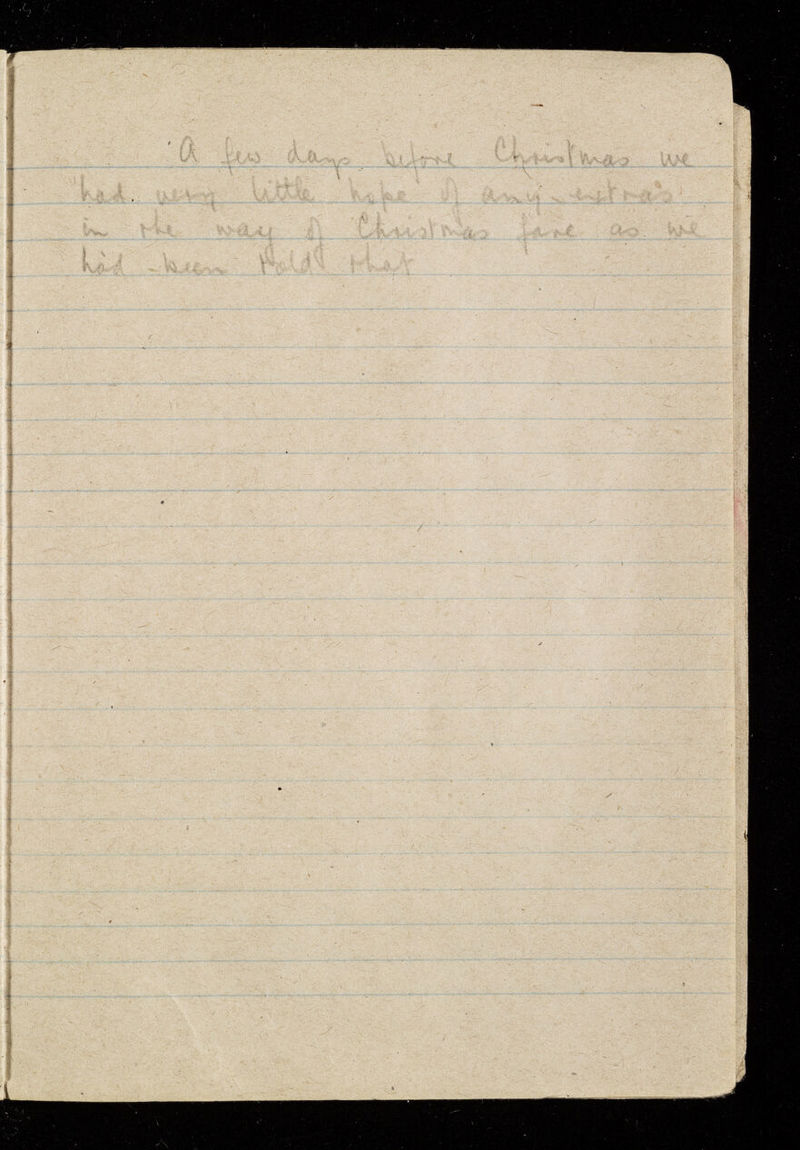 A few days before Christmas we
had very little hope of any extras
in the way of Christmas fare as we
had been told that